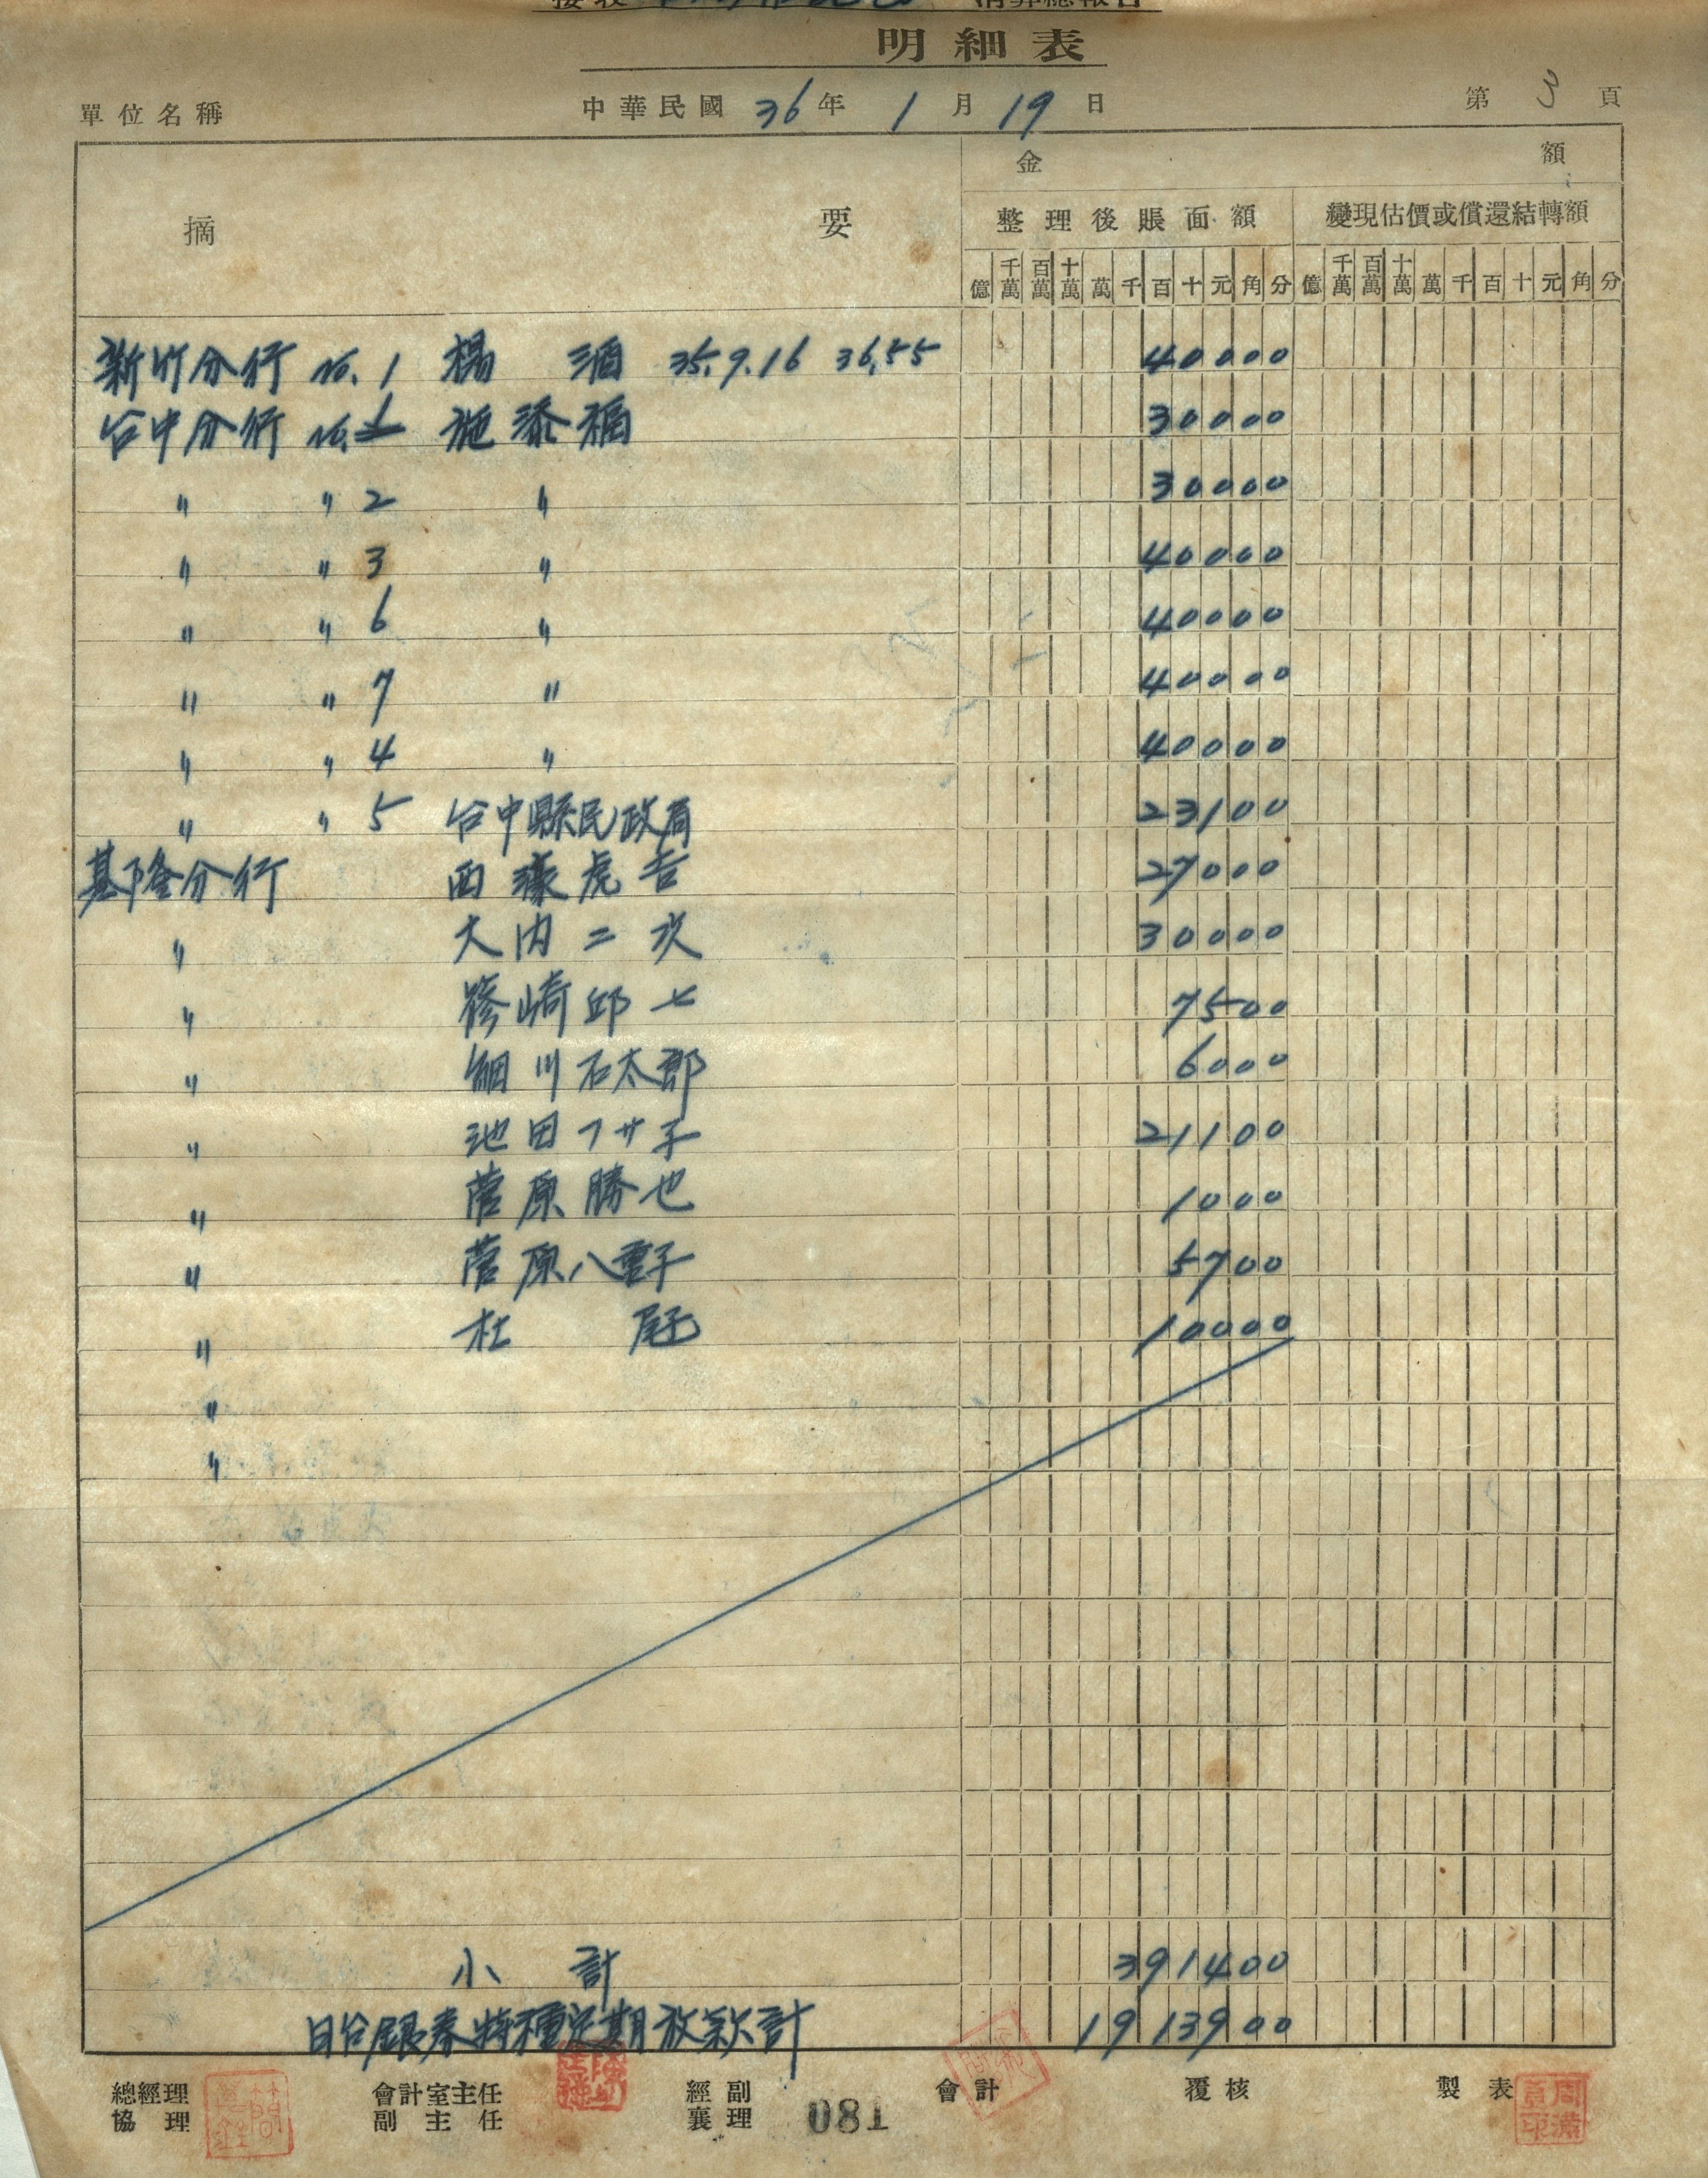 清算總報告
明細表
單位名稱 中華民國 36 年 1 月 19 日 第 3 頁
摘要 金額
整理後賬面額 變現估價或償還結轉額
億 千萬 百萬 十萬 萬 千 百 十 元 角 分 億 千萬 百萬 十萬 萬 千 百 十 元 角 分
新竹分行 No. 1 楊 酒 35.9.16 36.5.5 40000
台中分行 No. 1 施添福 30000
〃 〃 2 〃 30000
〃 〃 3 〃 40000
〃 〃 6 〃 40000
〃 〃 7 〃 40000
〃 〃 4 〃 40000
〃 〃 5 台中縣民政局 23100
基隆分行 西濠虎吉 27000
〃 大内二次 30000
〃 崎邱七 7500
〃 細川石太郎 6000
〃 池田フサ子 21100
〃 菅原勝也 1000
〃 菅原八重子 5700
〃 杜 尾 10000
〃
〃
小計 391400
日台銀券特種定期放款計 1913900
總經理 會計室主任 經副 會計 覆核 製表
協理 副主任 襄理 081